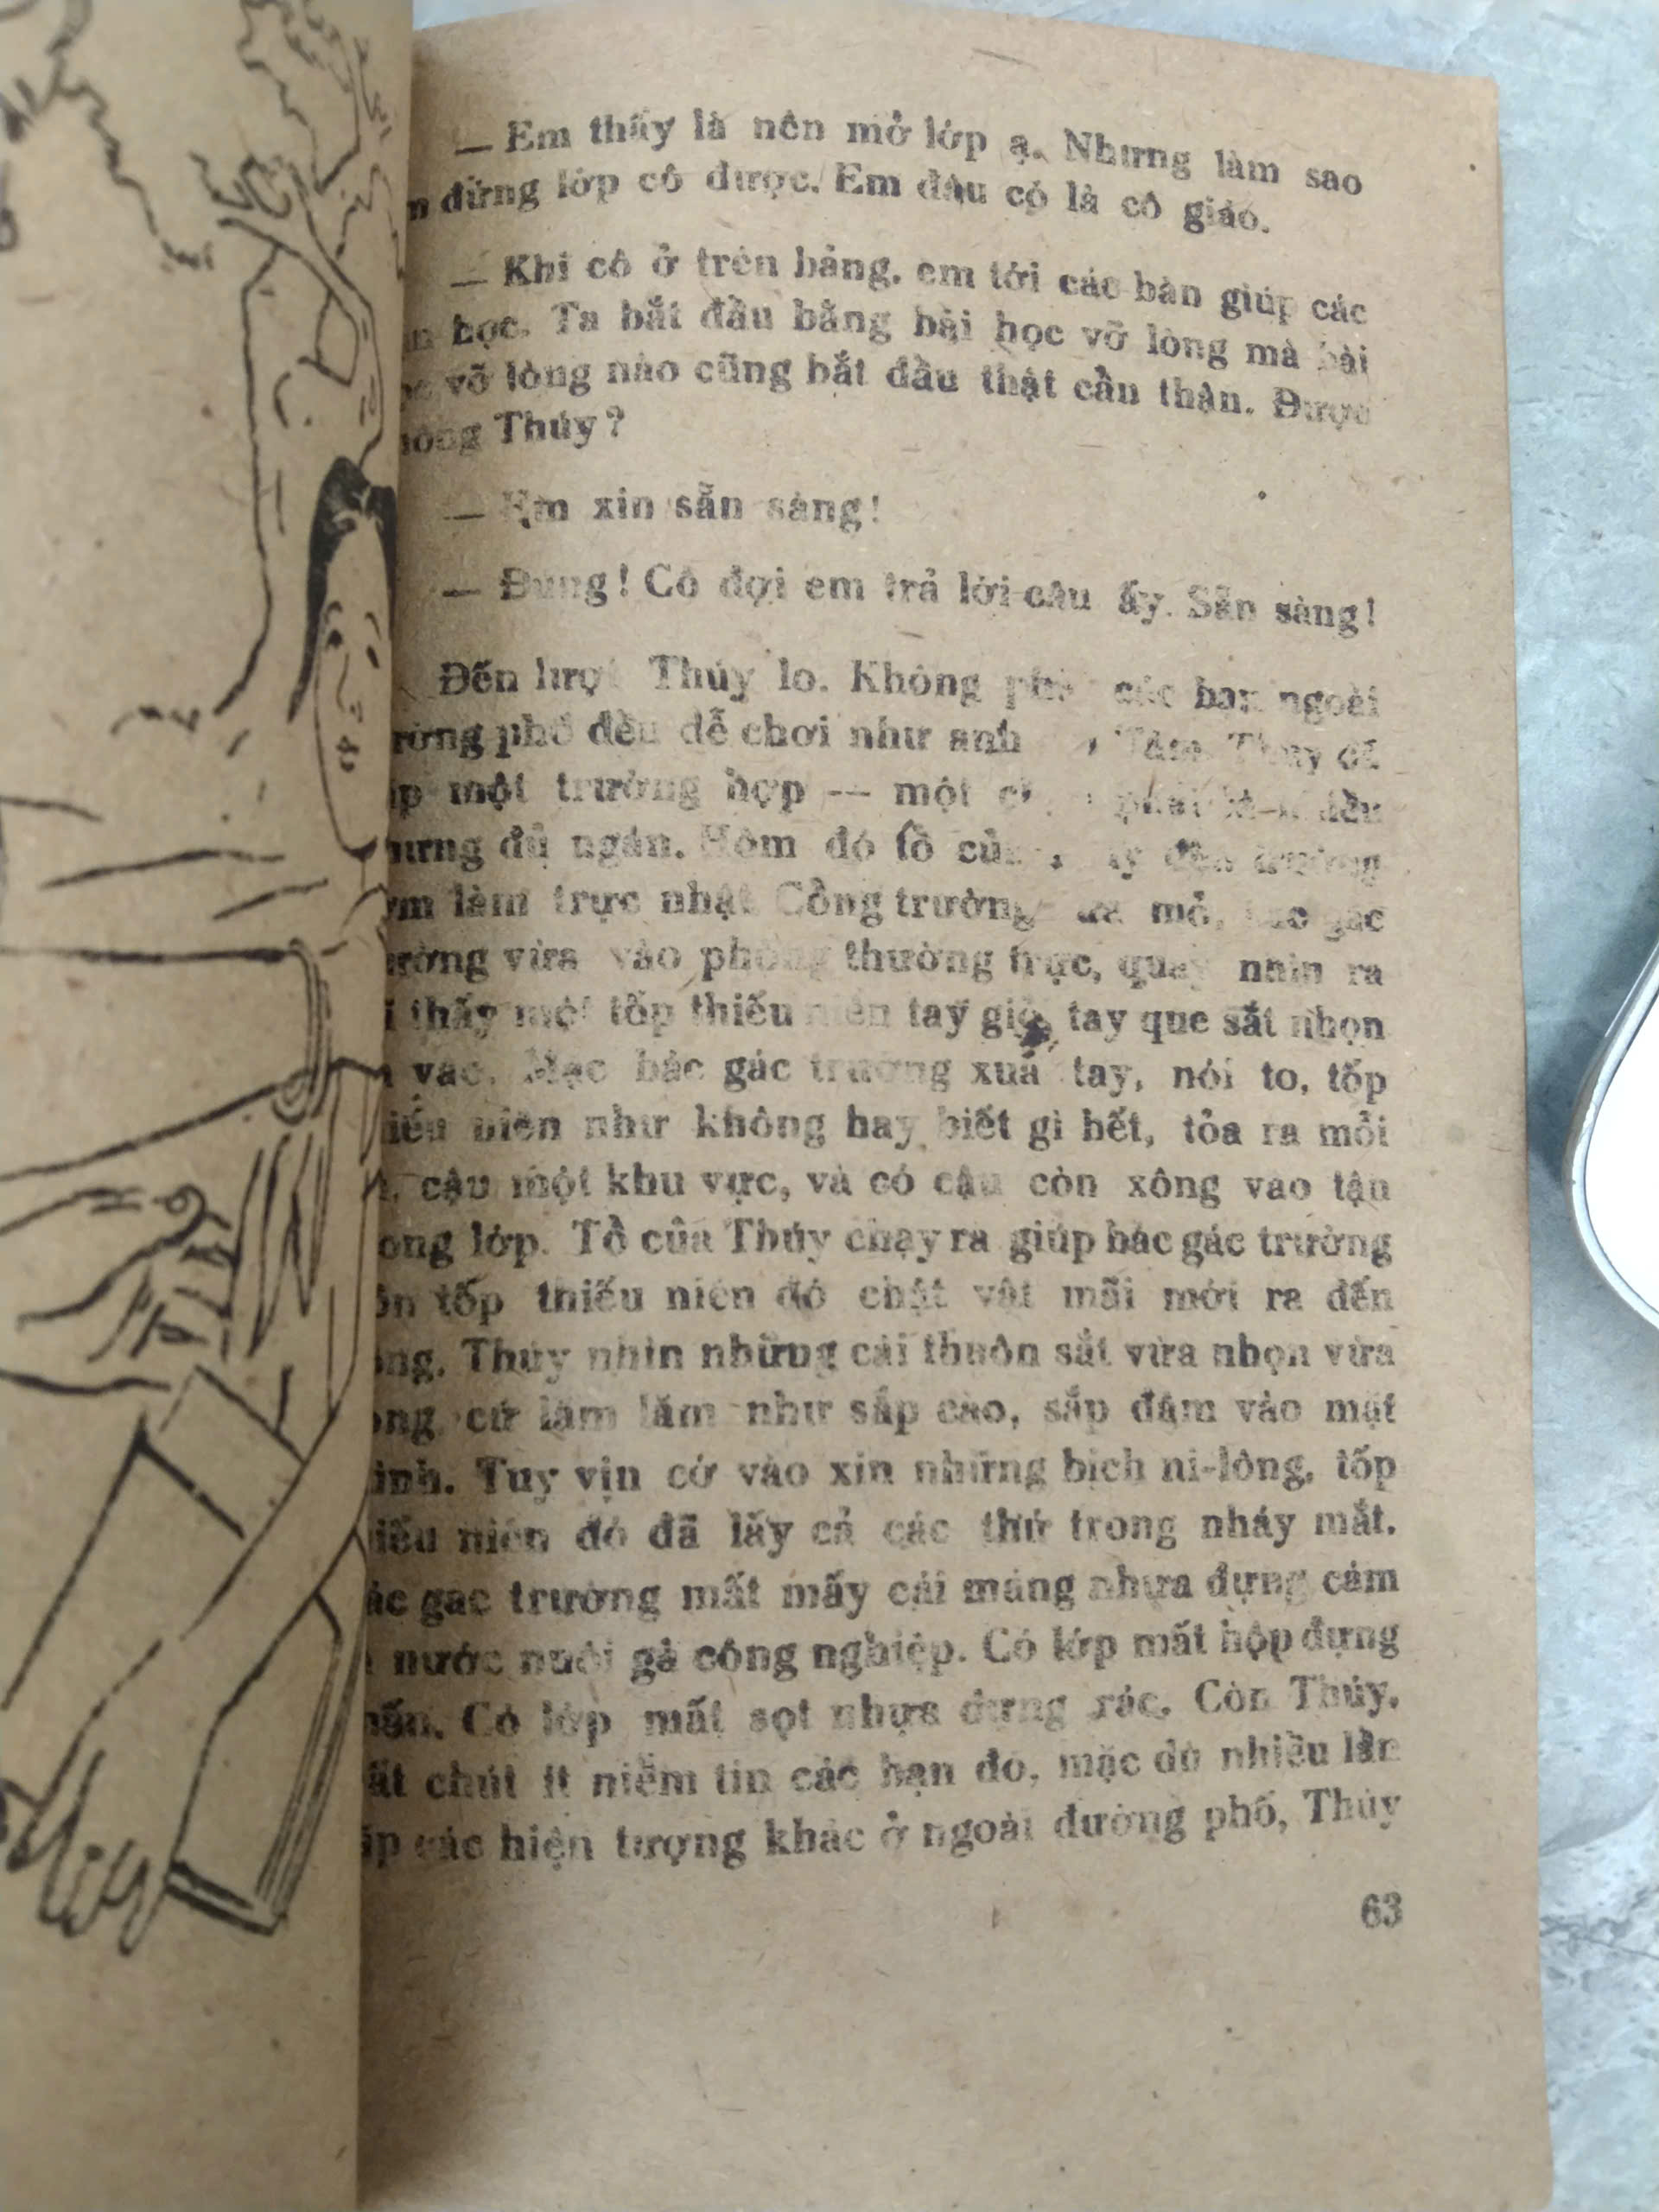 — Em thấy là nên mở lớp ạ. Nhưng làm sao
đứng lớp cô được. Em đâu có là cô giáo.
— Khi cô ở trên bảng, em tới các bàn giúp các
học. Ta bắt đầu bằng bài học vỡ lòng mà bài
vỡ lòng nào cũng bắt đầu thật cẩn thận. Được
Thúy?
— Em xin sẵn sàng!
— Đúng! Cô đợi em trả lời câu ấy. Sẵn sàng!
Đến lượt Thúy lo. Không các bạn ngoài
phố đều dễ chơi như anh Tâm. Thúy đã
một trường hợp — một
đủ ngán. Hôm đó tổ đến trường
làm trực nhật. Cổng trường mở, bác gác
vừa vào phòng thường trực, quay nhìn ra
thấy một tốp thiếu niên tay giỏ, tay que sắt nhọn
vào. Mặc bác gác trường xua tay, nói to, tốp
niên như không hay biết gì hết, tỏa ra mỗi
cậu một khu vực, và có cậu còn xông vào tận
lớp. Tổ của Thúy chạy ra giúp bác gác trường
tốp thiếu niên đó chật vật mãi mới ra đến
Thúy nhìn những cái thuôn sắt vừa nhọn vừa
cứ lăm lăm như sắp cào, sắp đâm vào mặt
Tuy vịn cớ vào xin những bịch ni-lông, tốp
niên đó đã lấy cả các thứ trong nháy mắt.
gác trường mất mấy cái máng nhựa đựng cám
nước nuôi gà công nghiệp. Có lớp mất hộp đựng
Có lớp mất sọt nhựa đựng rác. Còn Thúy,
chút ít niềm tin các bạn đó, mặc dù nhiều lần
các hiện tượng khác ở ngoài đường phố, Thúy
63